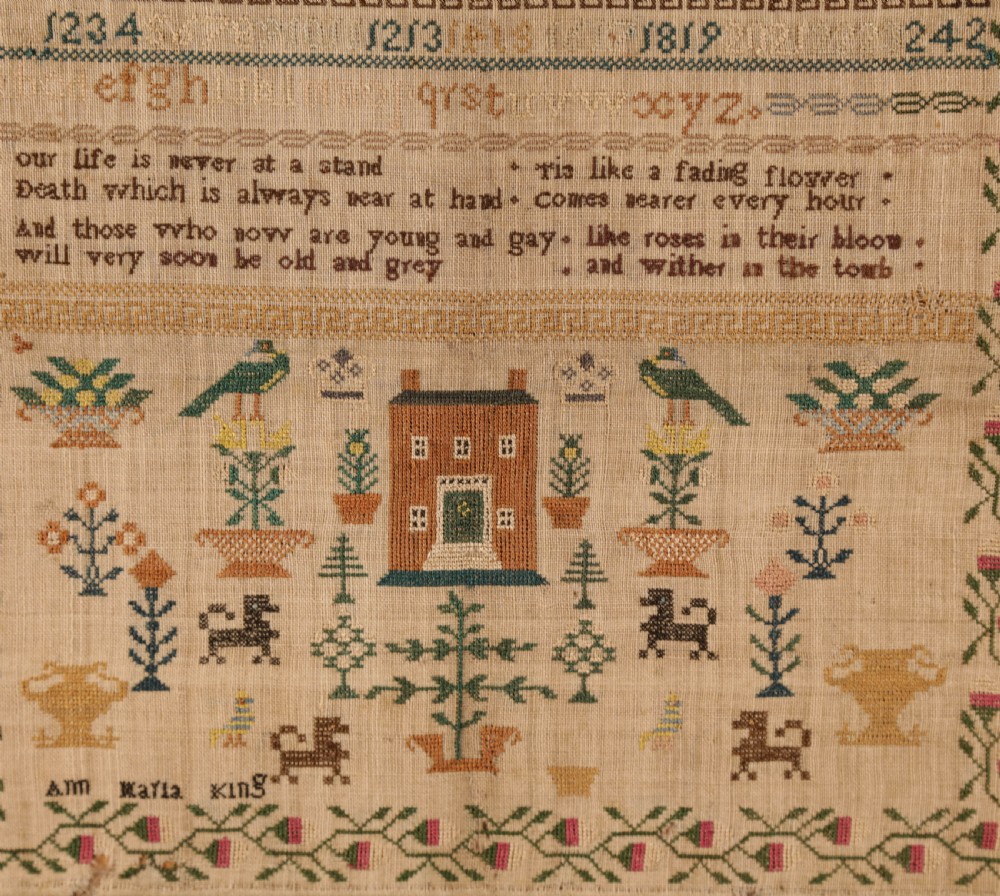 1234 1213 1819 242
efgh qrst xyz
our life is never at a stand tis like a fading flower
Death which is always near at hand comes nearer every hour
And those who now are young and gay like roses in their bloom
will very soon be old and grey and wither in the tomb
Ann Maria King